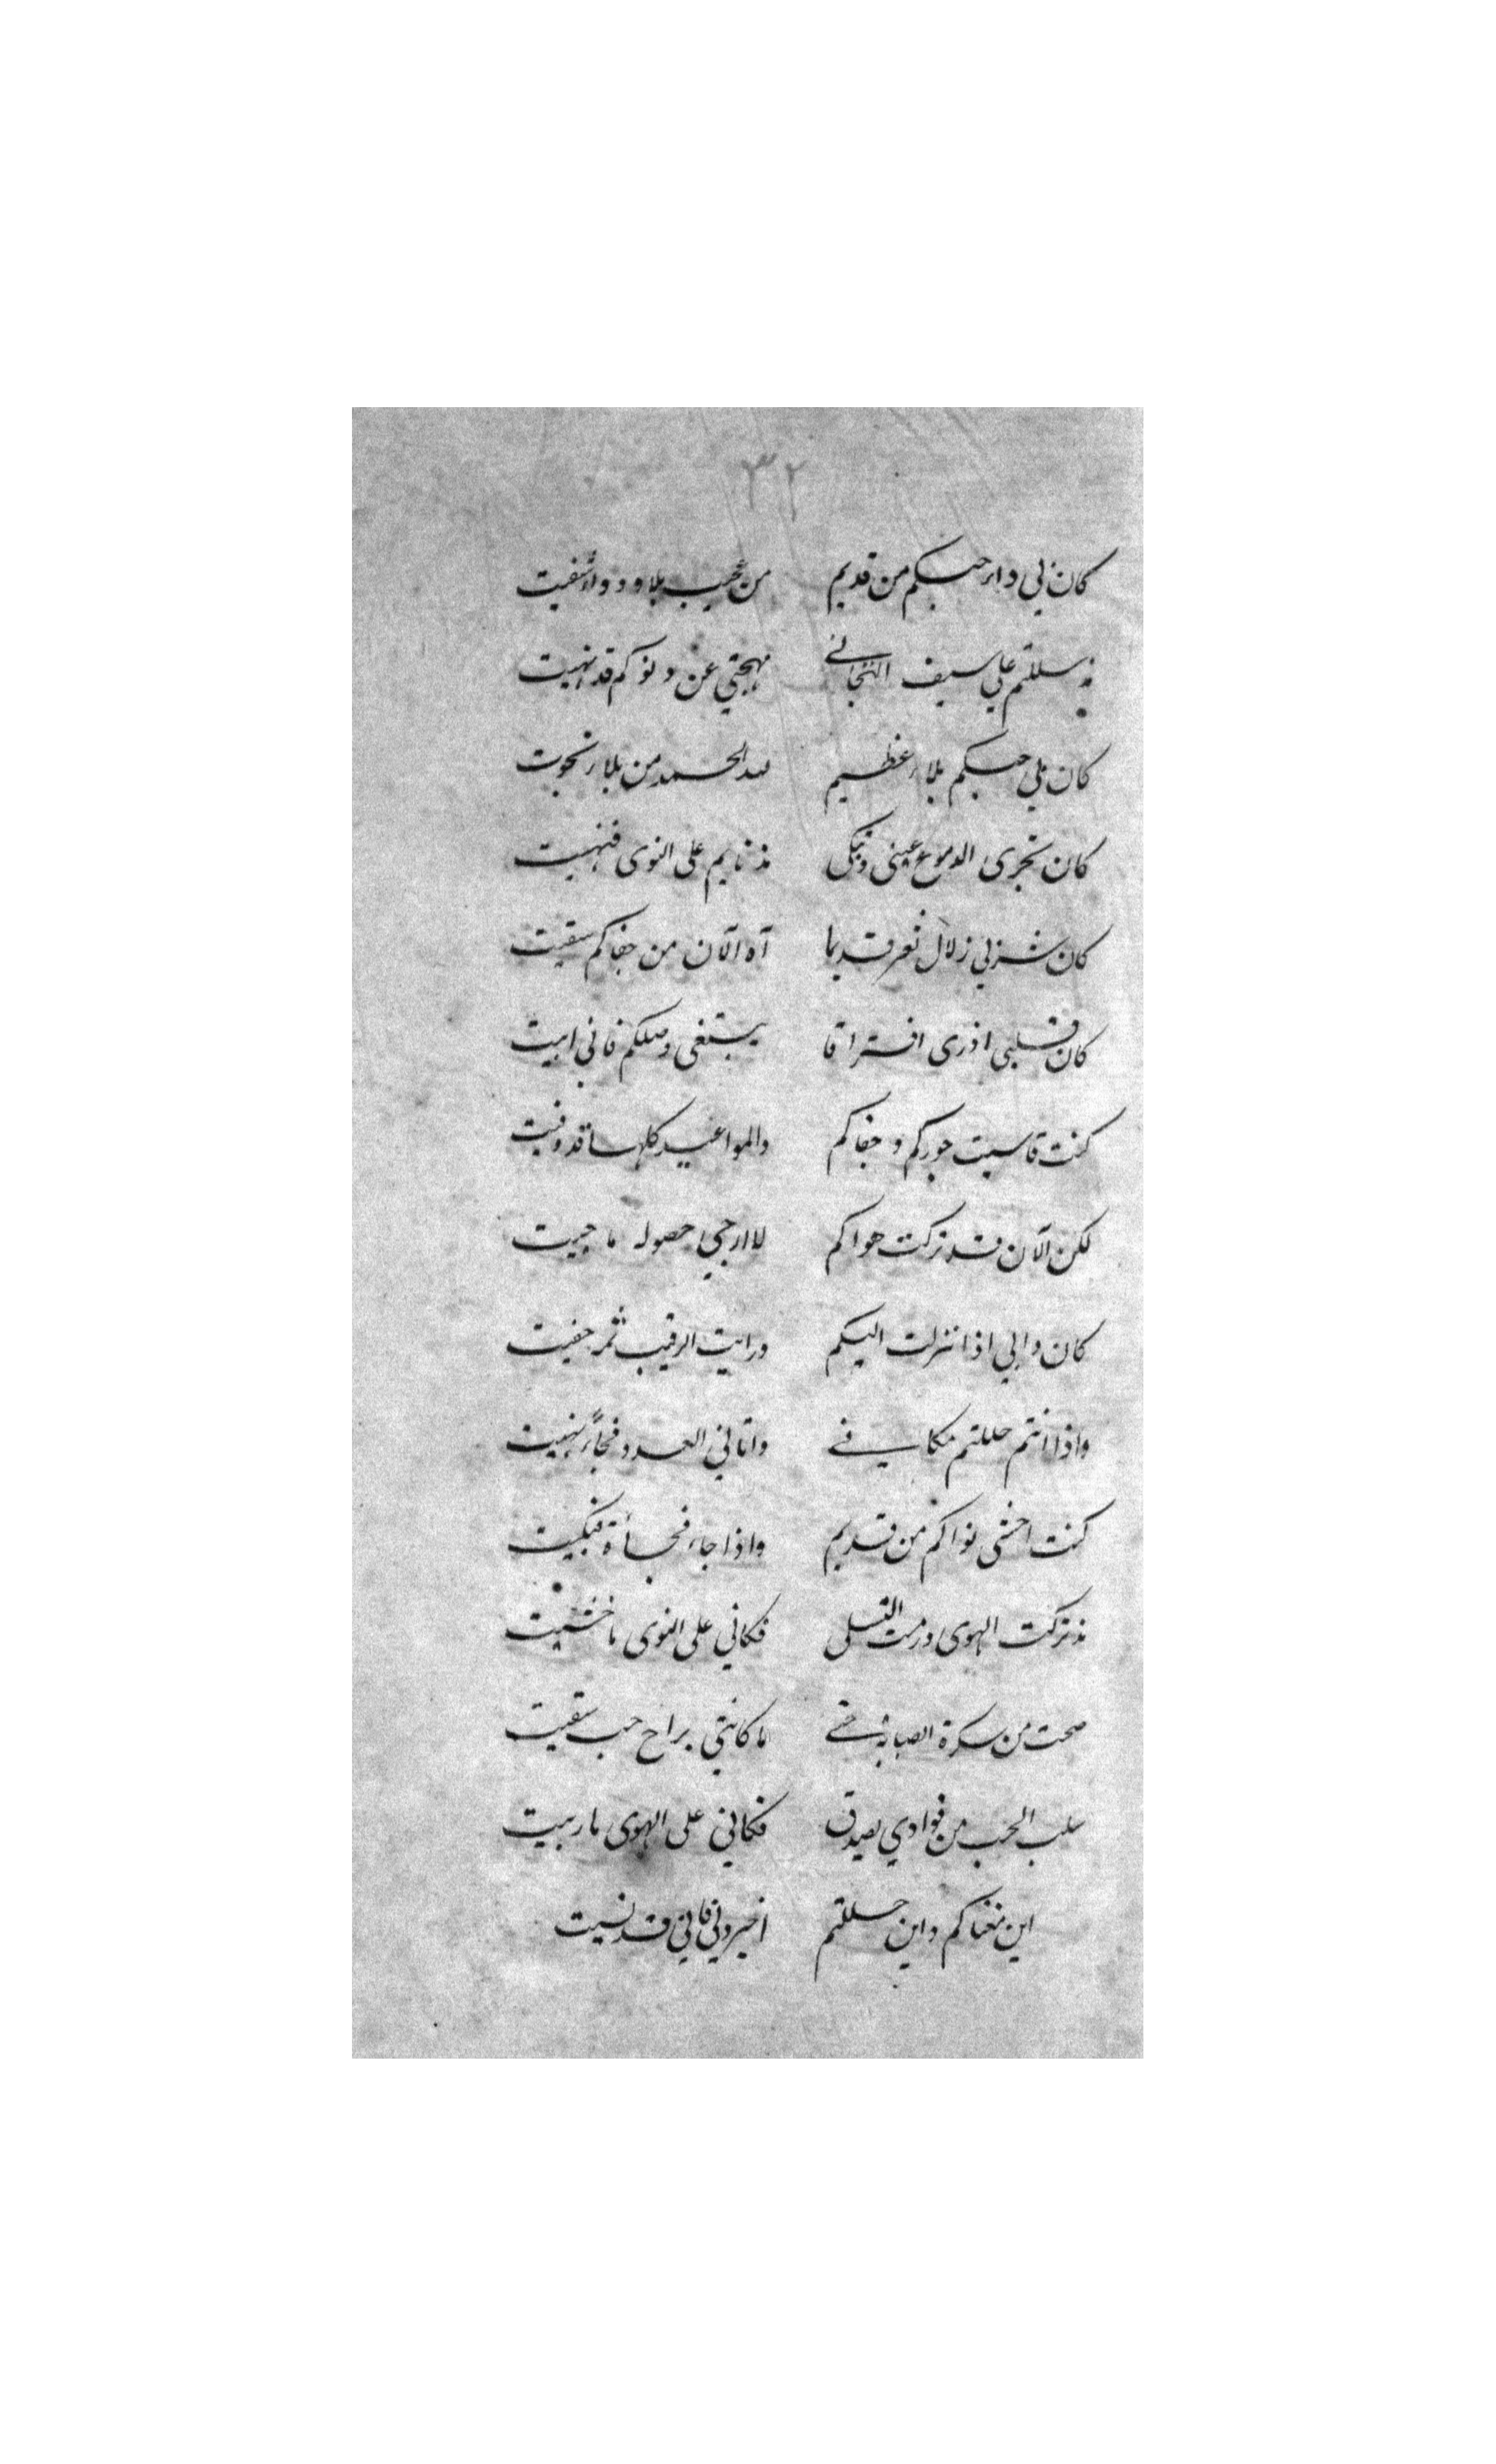 ٣٢
كان بي داء حبكم من قديم من عجيب بلا دواء شفيت
سللتم علي سيف التجافي مهجتي عن دنوكم قد نهيت
كان لي حبكم بلاء عظيم لله الحمد من بلاء نجوت
كان تجري الدموع عيني وتبكي مذ نايتم على النوى فنهيت
كان شربي زلال ثغر قديما آه الآن من جفاكم سقيت
كان قلبي اذ رى افتراقا يبتغي وصلكم فاني ابيت
كنت قاسيت جوركم وجفاكم والمواعيد كلها قد وفيت
لكن الآن قد تركت هواكم لا ارجي حصوله ما حييت
كان دابي اذا نزلت اليكم ورايت الرقيب ثمه خفيت
واذا انتم حللتم مكاني واتاني العدو فجأة
كنت اخشى نواكم من قديم واذا جاء فجأة فبكيت
مذ تركت الهوى ورمت التسلي فكاني على النوى ما خشيت
صحت من سكرة الصبابة حتى ما كانني براح حب سقيت
سلب الحب من فوادي بصدق فكاني على الهوى ما ربيت
اين مغناكم واين حللتم اخبروني فاني قد نسيت